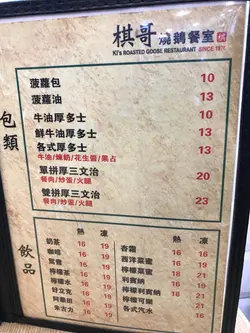 棋哥 燒鵝餐室
Ki's ROASTED GOOSE RESTAURANT SINCE
包類
菠蘿包 10
菠蘿油 13
牛油厚多士 10
鮮牛油厚多士 13
各式厚多士 13
牛油/煉奶/花生醬/果占
單拼厚三文治 20
餐肉/炒蛋/火腿
雙拼厚三文治 23
餐肉/炒蛋/火腿
飲品
熱 凍
奶茶 16 19
咖啡 16 19
鴛鴦 16 19
檸檬茶 16 19
檸檬水 16 19
好立克 16 19
阿華田 16 19
朱古力 16 19
熱 凍
杏霜
西洋菜蜜
檸檬蜜
利賓納
檸檬利賓納
檸檬可樂
各式汽水